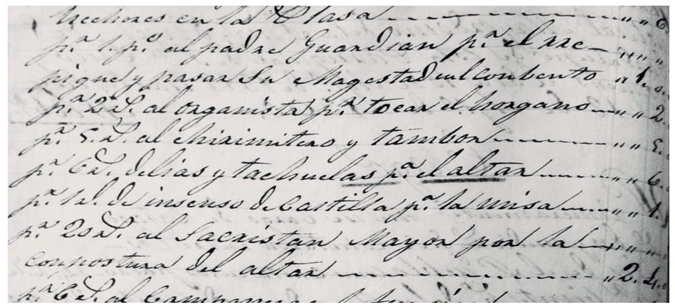 trechores en la Plasa ———— " " 6
pʳ. 1.pº al padre Guardian pª. el rre—
pique y pasar Su Magestad en el Conbento " 1. 0.
pʳ. 2 rˢ. al organista pª tocar el horgano — " " 2.
pʳ. 5 rˢ. al chirimitero y tambor ——— " " 5.
pʳ. 6 rˢ. de lias y tachuelas pª. el altar —— " " 6.
pʳ. 1 rˡ. de insenso de Castilla pª. la misa —— " " 1.
pʳ. 20 rˢ. al Sacristan Mayor por la
conpostura del altar ———— " 2. 4.
pʳ. 6 rˢ. al Campanero